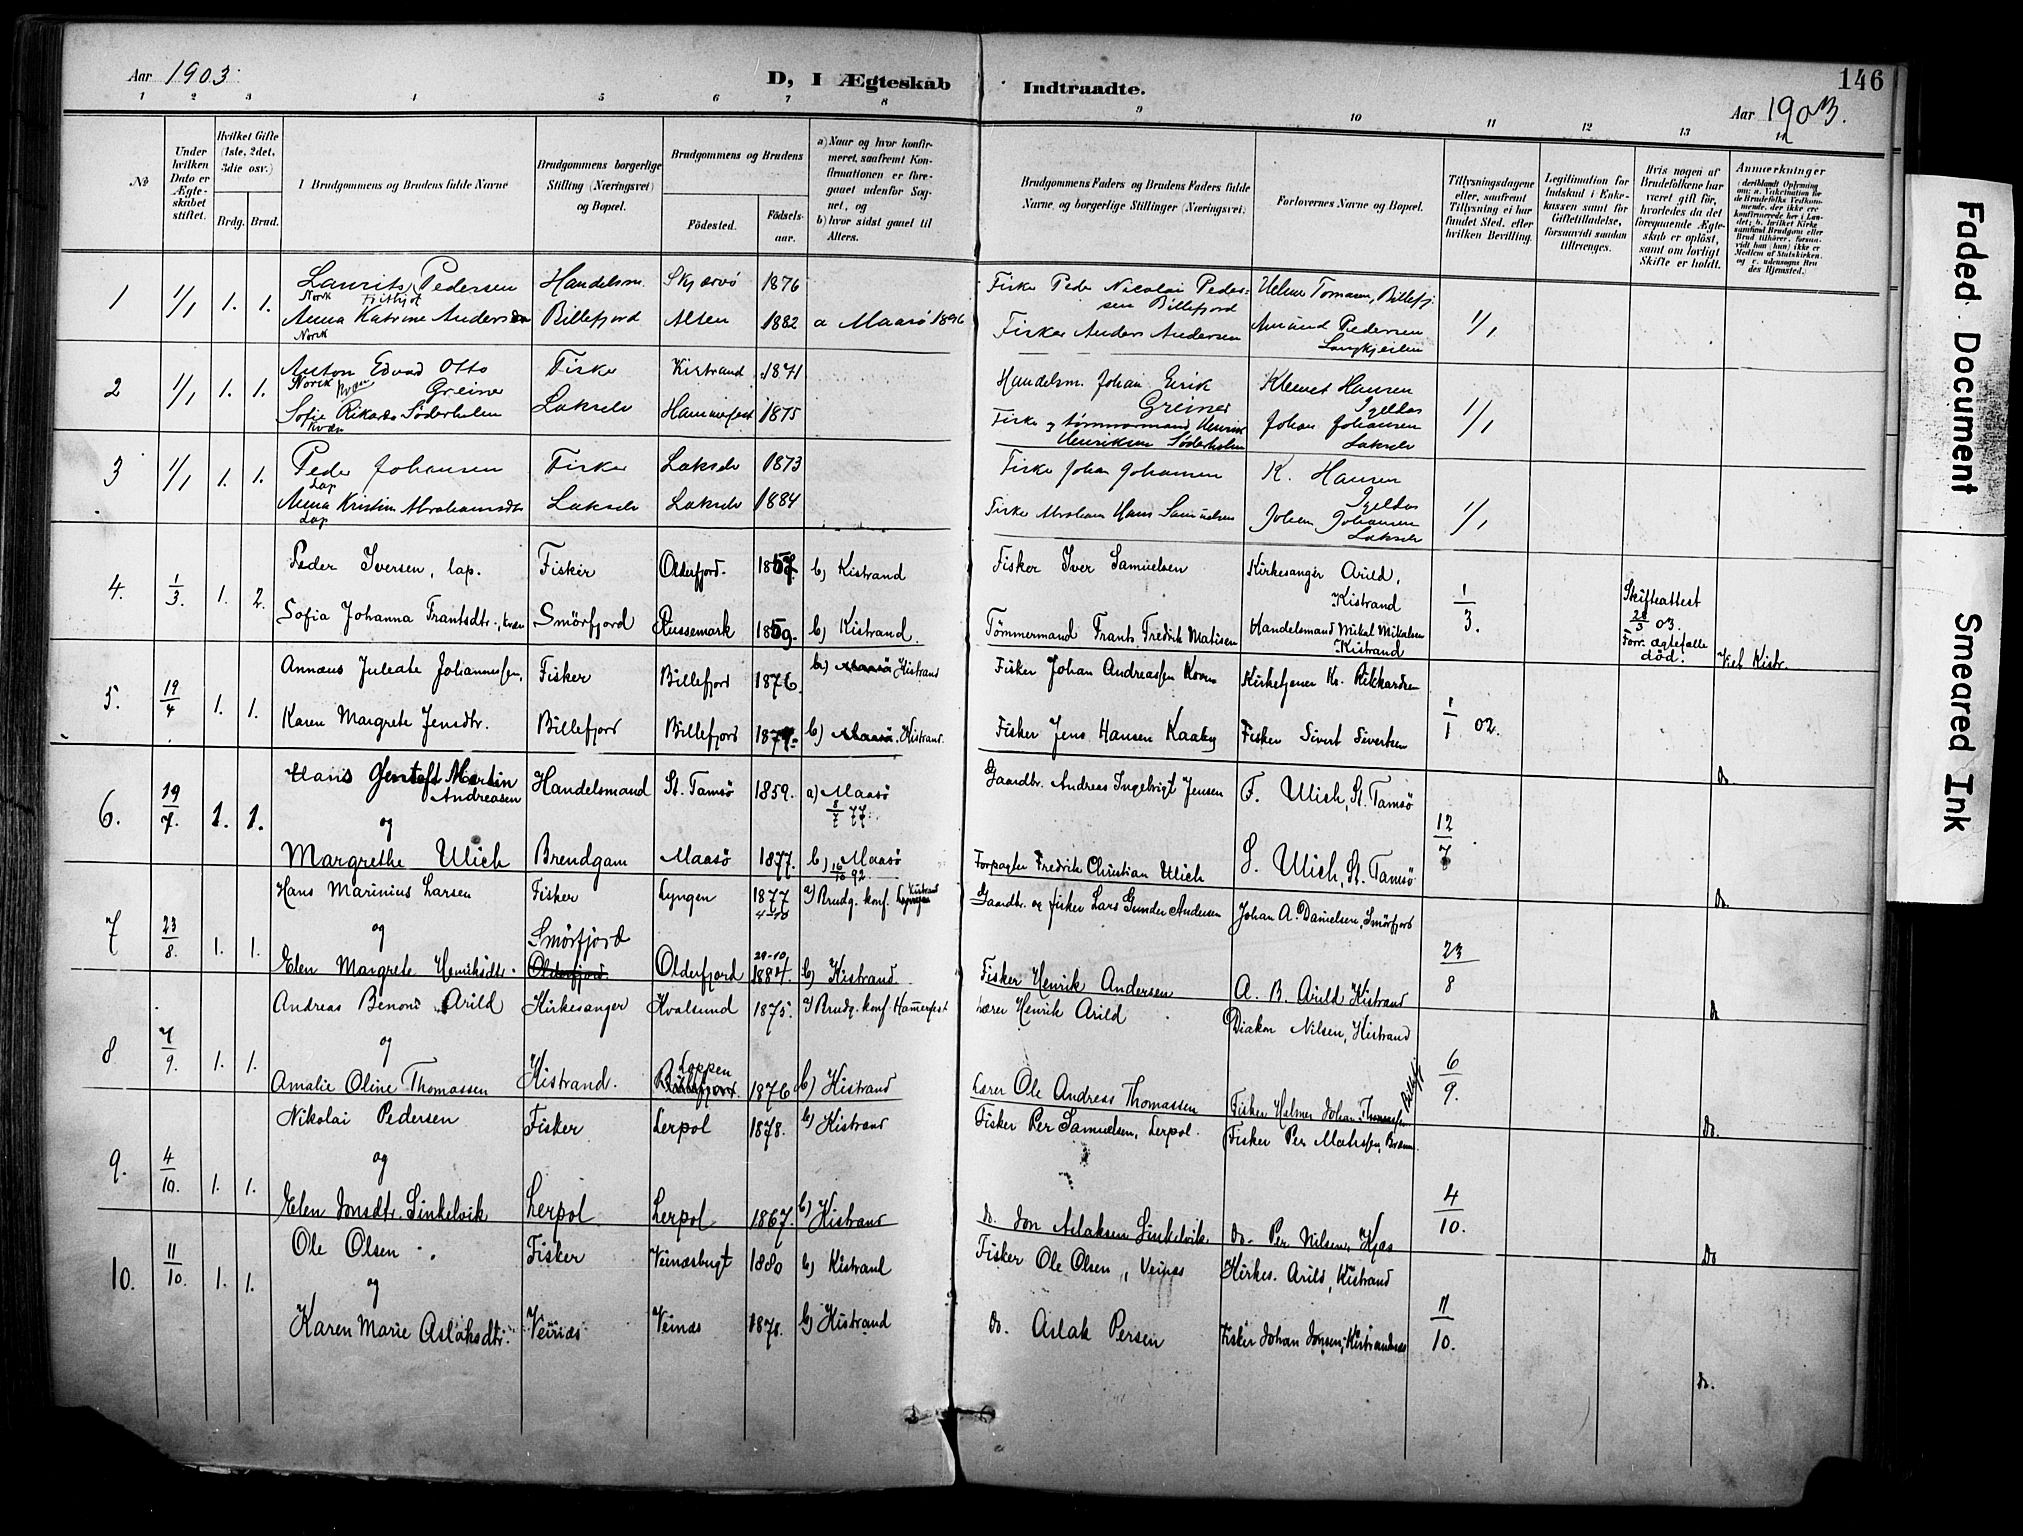 Aar 1903.
D, I Ægteskab Indtraadte.
146
Aar 1903.
1 2 3 4 5 6 7 8 9 10 11 12 13 14
No
Under hvilken Dato er Ægteskabet stiftet.
Hvilket Gifte (1ste, 2det, 3die osv.)
Brdg. Brud.
I Brudgommens og Brudens fulde Navne
Brudgommens borgerlige Stilling (Næringsvei) og Bopæl.
Brudgommens og Brudens
Fødested. Fødselsaar.
a) Naar og hvor konfirmeret, saafremt Konfirmationen er foregaaet udenfor Sognet, og
b) hvor sidst gaaet til Alters.
Brudgommens Faders og Brudens Faders fulde Navne og borgerlige Stillinger (Næringsvei)
Forlovernes Navne og Bopæl.
Tillysningsdagene eller, saafremt Tillysning ei har fundet Sted, efter hvilken Bevilling.
Legitimation for Indskud i Enkekassen samt for Giftetilladelse, forsaavidt saadan tiltrænges.
Hvis nogen af Brudefolkene har været gift før, hvorledes da det foregaaende Ægteskab er opløst, samt om lovligt Skifte er holdt.
Anmærkninger
1 1/1 1. 1. Laurits Pedersen Handelsm. Skjærvö 1876 Fisker Peder Nicolai Pedersen Billefjord Helmer Tomasen, Billefj.
Norsk
Anna Katrine Andersen Billefjord Alten 1882 a Maasö 1896 Fisker Anders Andersen Amund Pedersen 1/1
Norsk
2 1/1 1. 1. Anton Edvard Otto Greiner Fisker Kistrand 1871 Handelsm. Johan Erik Greiner Klemet Hansen Igeldas
Norsk Kvæn
Sofie Rikarda Söderholm Lakselv Hammerfest 1875 Fisker og tømmermand Henrik Henriksen Söderholm Johan Johansen Lakselv 1/1
Kvæn
3 1/1 1. 1. Peder Johansen Fisker Lakselv 1873 Fisker Johan Johansen K. Hansen Igeldas
Lap
Anna Kristine Abrahamsdtr Lakselv Lakselv 1884 Fisker Abraham Hans Samuelsen Johan Johansen Lakselv 1/1
Lap
4. 1/3. 1. 2. Peder Iversen, lap. Fisker Olderfjord. 1857. b) Kistrand Fisker Iver Samuelsen Kirkesanger Arild, Kistrand
Sofia Johanna Frantsdtr., kvæn Smörfjord Russemark 1859. b) Kistrand. Tömmermand Frants Fredrik Matisen Handelsmand Mikal Mikalsen Kistrand 1/3.
Skifteattest 28/3 03. Forr. ægtefælle död.
Viet Kistr.
5. 19/4 1. 1. Annæus Juleate Johannessen, Fisker Billefjord 1876. b) Maasö Kistrand Fisker Johan Andreassen Kirketjener Kr. Rikkardsen
Karen Margrete Jensdtr. Billefjord Billefjord 1879. b) Maasö. Kistrand. Fisker Jens Hansen Kaaby Fisker Sivert Sivertsen 1/1 02.
do
6. 19/7. 1. 1. Hans Gentoft Martin Andreasen Handelsmand St. Tamsö 1859. a) Maasö 8/7 77. Gaardbr. Andreas Ingebrigt Jensen F. Ulich, St. Tamsö
og
Margrethe Ulich Brendgam Maasö 1877. b) Maasö 16/10 92. Forpagter Fredrik Christian Ulich S. Ulich, St. Tamsö 12/7
do.
7 23/8. 1. 1. Hans Marinius Larsen Fisker Lyngen 1877 a) Brudg. konf. Lyngen Kistrand Gaardbr. og fisker Lars Gunder Andersen Johan A. Danielsen, Smörfjord
og
Elen Margrete Henriksdtr. Smörfjord Olderfjord Olderfjord 29-10 1884. b) Kistrand. Fisker Henrik Andersen A. B. Arild Kistrand 23/8
do
8 7/9. 1. 1. Andreas Benoni Arild Kirkesanger Kvalsund 1875. a) Brudg. konf. Hamerfest Lærer Henrik Arild Diakon Nilsen, Kistrand
og
Amalie Oline Thomassen Kistrand. Loppen Billefjord. 1876 b) Kistrand Lærer Ole Andreas Thomassen Fisker Helmer Johan Thomassen Billefj 6/9.
do.
9. 4/10. 1. 1. Nikolai Pedersen Fisker Lerpol 1878. b) Kistrand Fisker Per Samuelsen, Lerpol. Fisker Per Mathssen,
og
Elen Jonsdtr. Sinkelvik Lerpol Lerpol 1867. b) Kistrand do. Jon Aslaksen Sinkelvik do. Per Nilsen, Kjæs 4/10.
do
10. 11/10. 1. 1. Ole Olsen Fisker Veinæsbugt 1880 b) Kistrand Fisker Ole Olsen, Veinæs Kirkes. Arild, Kistrand
og
Karen Marie Aslaksdtr. Veinæs Veinæs 1878. b) Kistrand do. Aslak Persen Fisker Johan Jonsen, Kistrandnæs 11/10.
do.
Faded Document
Smeared Ink